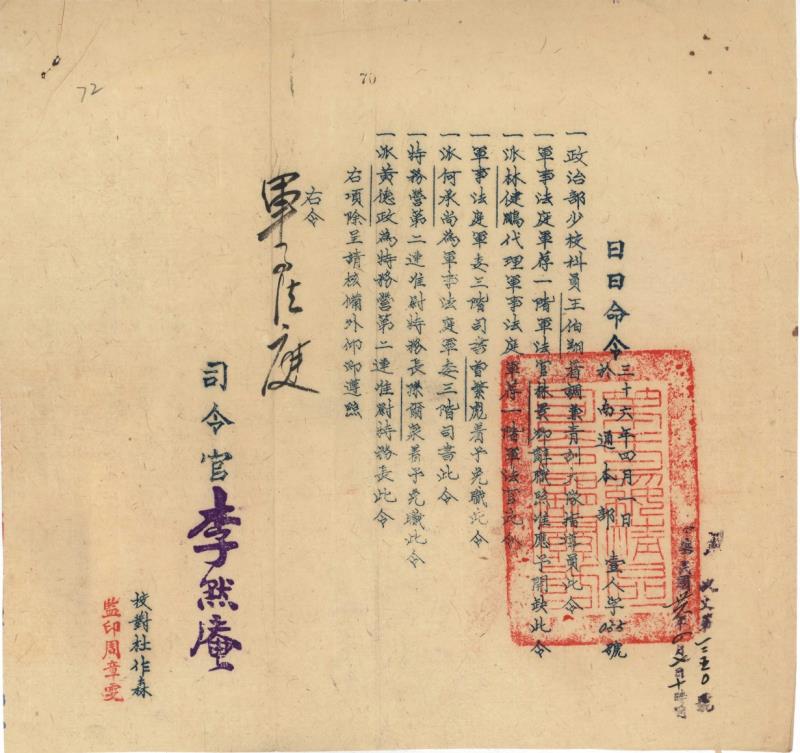 日日命令
三十六年四月一日
於南通本部
壹人字055號
一政治部少校科員王伯翔着調兼青訓大隊指導員此令
一軍事法庭軍荐一階軍法官林景柳辭職照准應予開缺此令
一派林健鵬代理軍事法庭軍荐一階軍法官此令
一軍事法庭軍委三階司書曹繁彪着予免職此令
一派何承尚為軍事法庭軍委三階司書此令
一特務營第二連准尉特務長陳爾泉着予免職此令
一派黃德政為特務營第二連准尉特務長此令
右項除呈請核備外仰即遵照
右令
軍事法庭
司令官李默庵
校對杜作森
監印周章雯
72
70